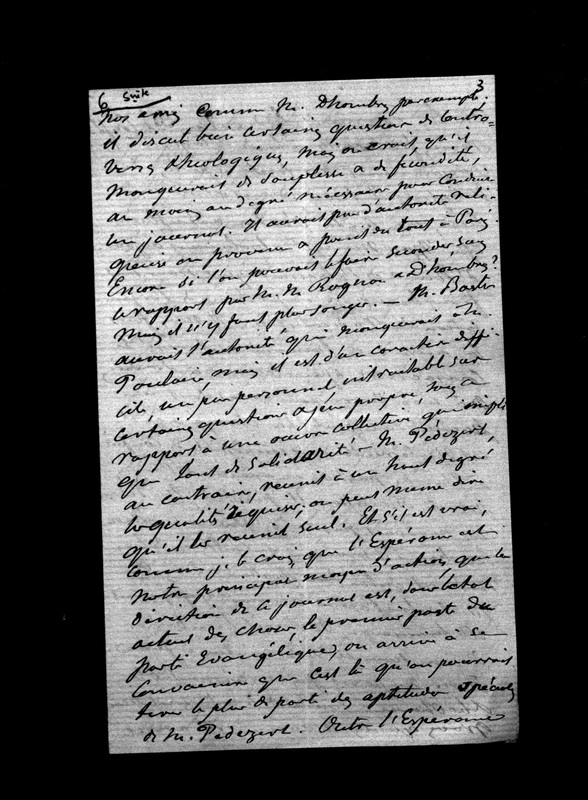 6 Suite
3
Nos amis comme M. Dhombres par exemple.
Il discute bien certaines questions de contro-
verse théologique, mais on croit qu'il
manquerait de souplesse & de fécondité,
au moins au degré nécessaire pour conduire
un journal. Il aurait peu d'autorité reli-
gieuse en province & point du tout à Paris
Encore si l'on pouvait le faire seconder sous
ce rapport par M. M. Rognon & Dhombres?
Mais il n'y faut plus songer. — M. Bastie
aurait l'autorité qui manquerait à M.
Poulain, mais il est d'un caractère diffi-
cile, un peu personnel intraitable sur
certaines questions à jeu propre,
rapport à une œuvre collective qui
que tout de solidarité — M. Pédezert,
au contraire, réunit à un haut degré
les qualités requises; on peut même dire
qu'il les réunit seul. Et s'il est vrai,
comme je le crois, que l'Espérance est
notre principal moyen d'action, que la
direction de ce journal est, dans l'état
actuel des choses, le premier poste du
parti Évangélique, on arrive à se
convaincre que c'est là qu'on pourrait
tirer le plus de parti des aptitudes spéciales
de M. Pédezert. Outre l'Espérance